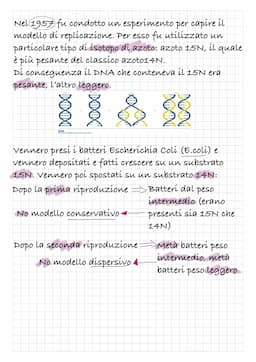 Nel 1957 fu condotto un esperimento per capire il
modello di replicazione. Per esso fu utilizzato un
particolare tipo di isotopo di azoto: azoto 15N, il quale
è più pesante del classico azoto14N.
Di conseguenza il DNA che conteneva il 15N era
pesante, l'altro leggero.
Vennero presi i batteri Escherichia Coli (E.coli) e
vennero depositati e fatti crescere su un substrato
15N. Vennero poi spostati su un substrato 14N:
Dopo la prima riproduzione ⇒ Batteri dal peso
intermedio (erano
No modello conservativo ◄ presenti sia 15N che
14N)
Dopo la seconda riproduzione ⇒ Metà batteri peso
intermedio, metà
No modello dispersivo ◄ batteri peso leggero.